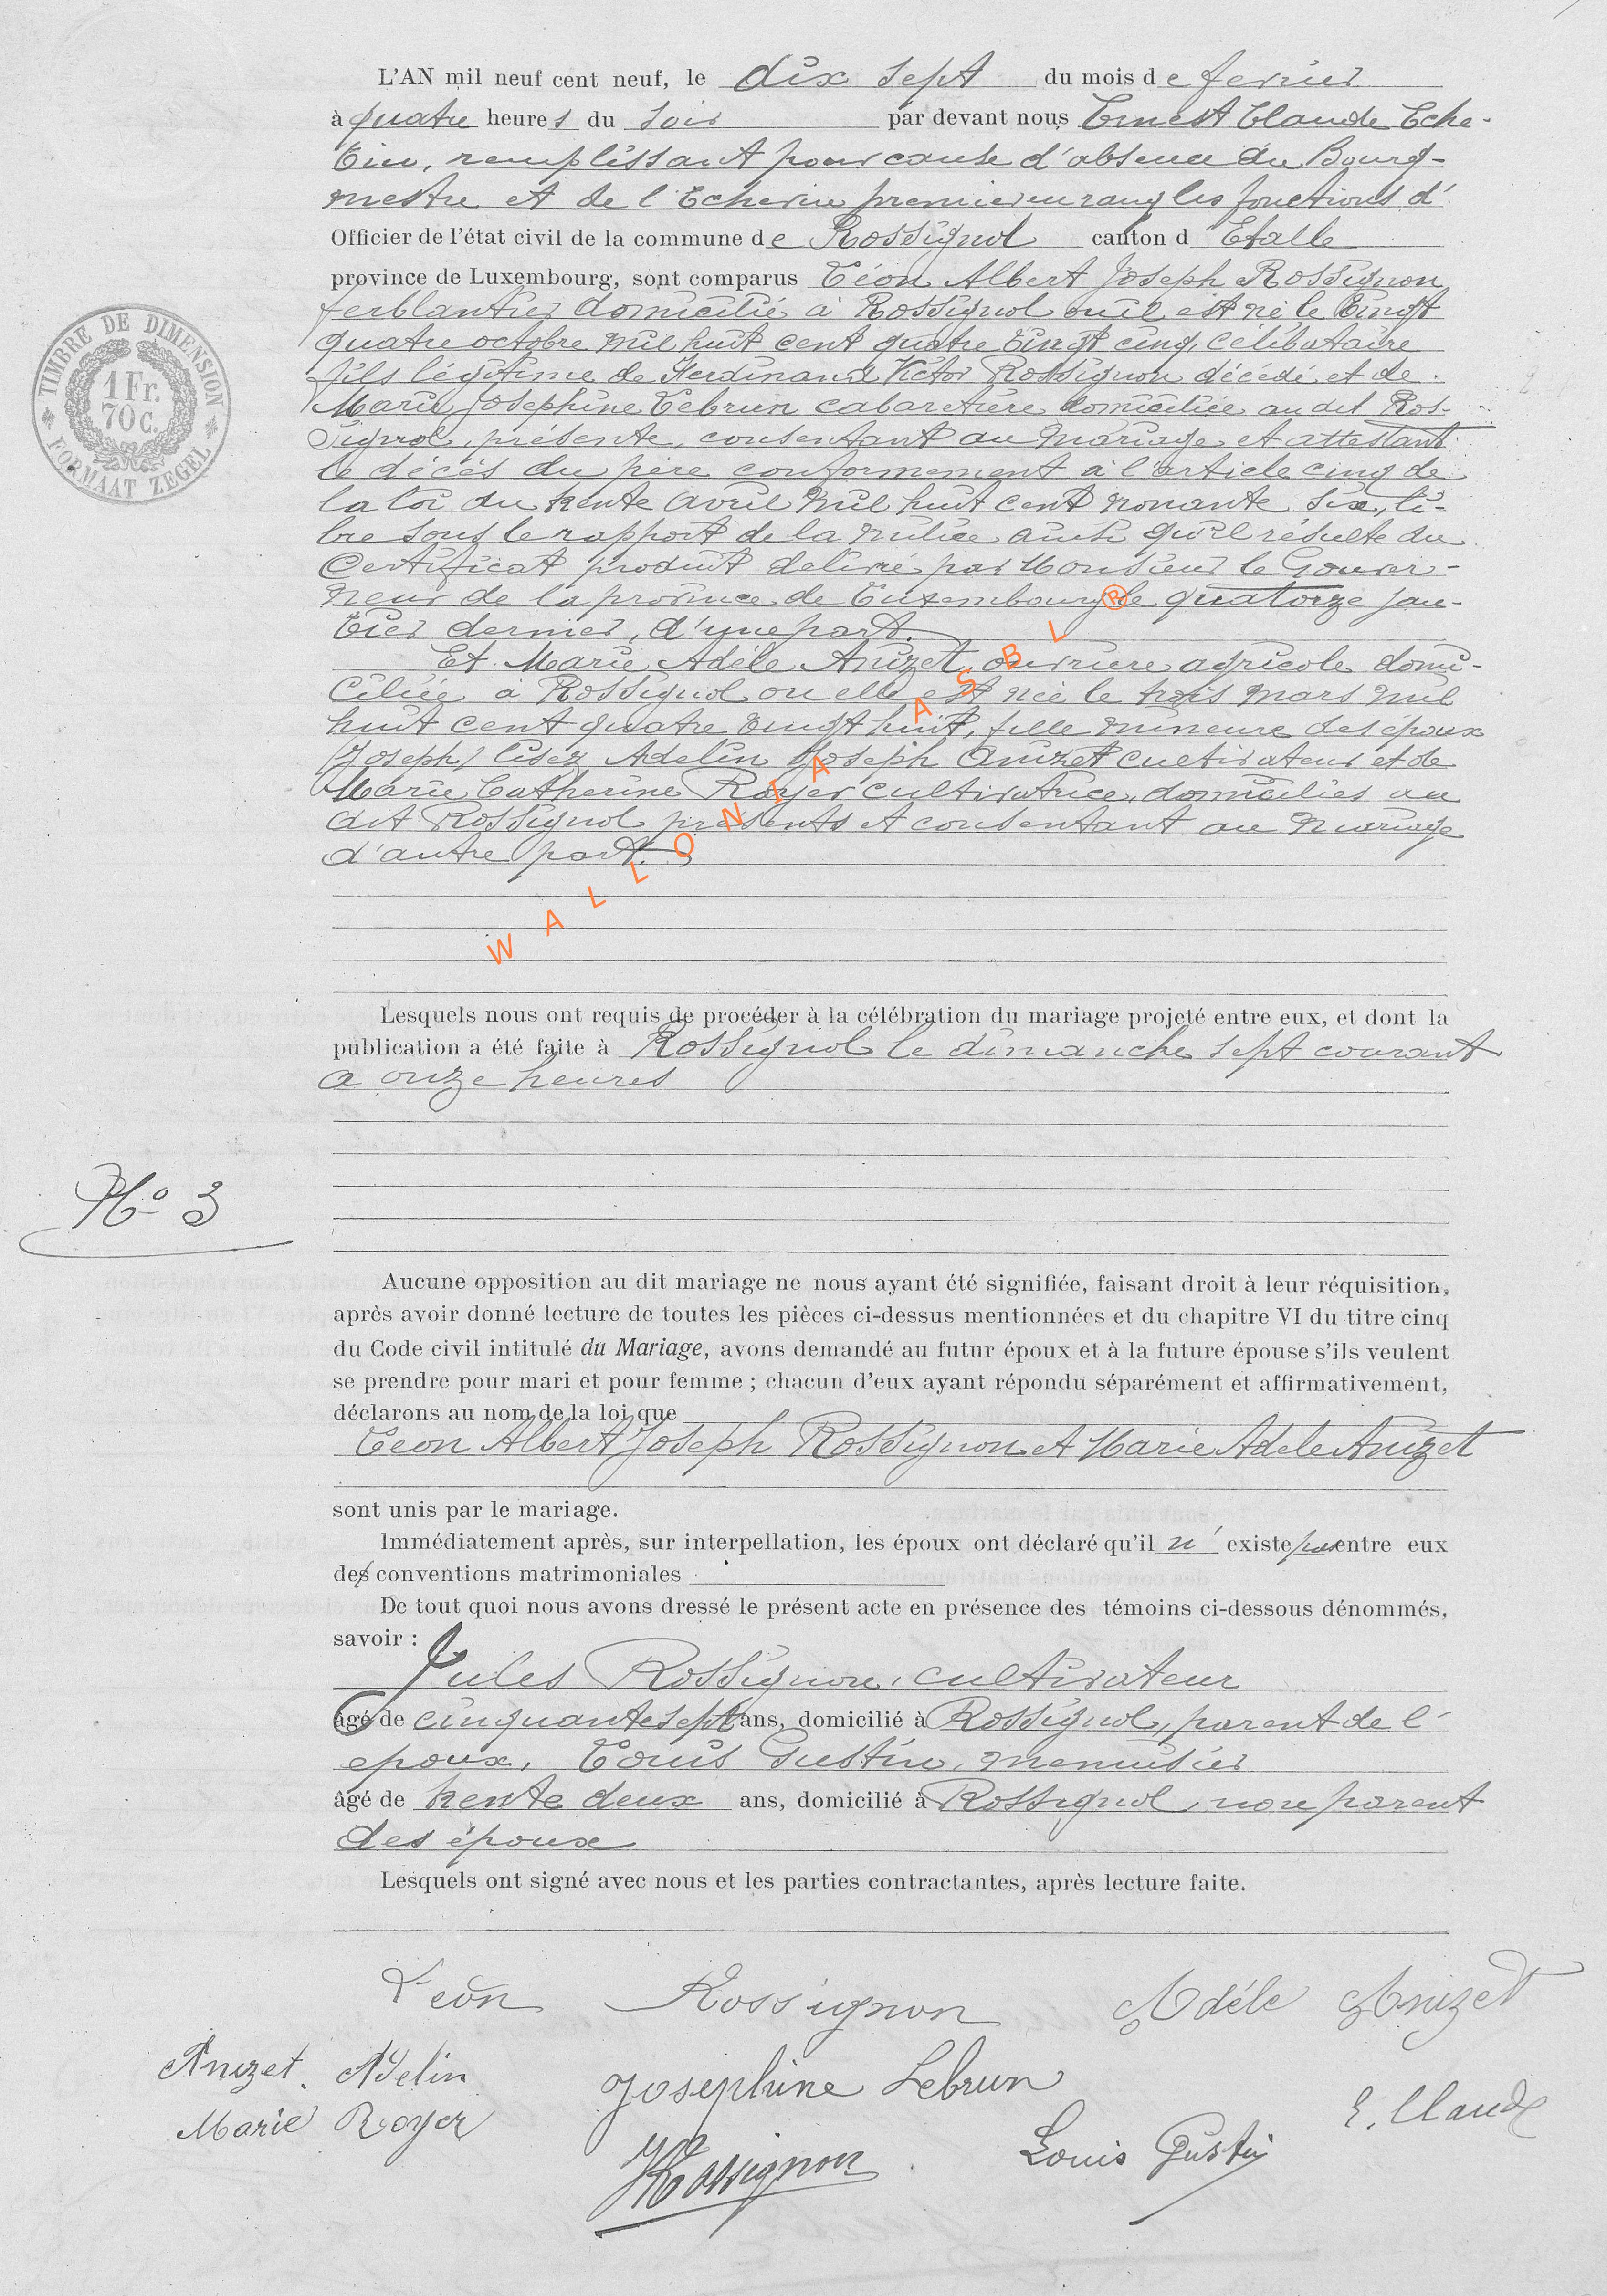 L'AN mil neuf cent neuf, le dix sept du mois de fevrier
à quatre heures du soir par devant nous Ernest Claude Eche-
vin, remplissant pour cause d'absence du Bourg-
mestre et de l'Echevin premier en rang les fonctions d'
Officier de l'état civil de la commune de Rossignol canton d Etalle
province de Luxembourg, sont comparus Léon Albert Joseph Rossignon
ferblantier domicilié à Rossignol où il est né le vingt
quatre octobre mil huit cent quatre vingt cinq, célibataire
fils légitime de Ferdinand Victor Rossignon décédé et de
Marie Josephine Lebrun cabaretière domiciliée au dit Ros-
signol, présente, consentant au mariage et attestant
le décès du père conformement à l'article cinq de
la loi du trente avril mil huit cent nonante six, li-
bre sous le rapport de la milice ainsi qu'il résulte du
Certificat produit délivré par Monsieur le Gouver-
neur de la province de Luxembourg le quatorze jan-
vier dernier, d'une part.
Et Marie Adèle Anizet, ouvrière agricole domi-
ciliée à Rossignol ou elle est née le trois mars mil
huit cent quatre vingt huit, fille mineure des époux
(Joseph) lisez Adelin Joseph Anizet cultivateur et de
Marie Catherine Royer cultivatrice, domiciliés au
dit Rossignol présents et consentant au mariage
d'autre part.
WALLONIA ASBL ®
Lesquels nous ont requis de procéder à la célébration du mariage projeté entre eux, et dont la
publication a été faite à Rossignol le dimanche sept courant
a onze heures
No 3
Aucune opposition au dit mariage ne nous ayant été signifiée, faisant droit à leur réquisition,
après avoir donné lecture de toutes les pièces ci-dessus mentionnées et du chapitre VI du titre cinq
du Code civil intitulé du Mariage, avons demandé au futur époux et à la future épouse s'ils veulent
se prendre pour mari et pour femme ; chacun d'eux ayant répondu séparément et affirmativement,
déclarons au nom de la loi que
Léon Albert Joseph Rossignon et Marie Adele Anizet
sont unis par le mariage.
Immédiatement après, sur interpellation, les époux ont déclaré qu'il n' existe pas entre eux
de conventions matrimoniales
De tout quoi nous avons dressé le présent acte en présence des témoins ci-dessous dénommés,
savoir :
Jules Rossignon, cultivateur
âgé de cinquante sept ans, domicilié à Rossignol, parent de l'
epoux, Louis Gustin, menuisier
âgé de trente deux ans, domicilié à Rossignol, non parent
des époux
Lesquels ont signé avec nous et les parties contractantes, après lecture faite.
Léon Rossignon Adéle Anizet
Anizet Adelin Josephine Lebrun
Marie Royer E. Claude
JRossignon Louis Gustin
TIMBRE DE DIMENSION
1 Fr.
70 C.
FORMAAT ZEGEL